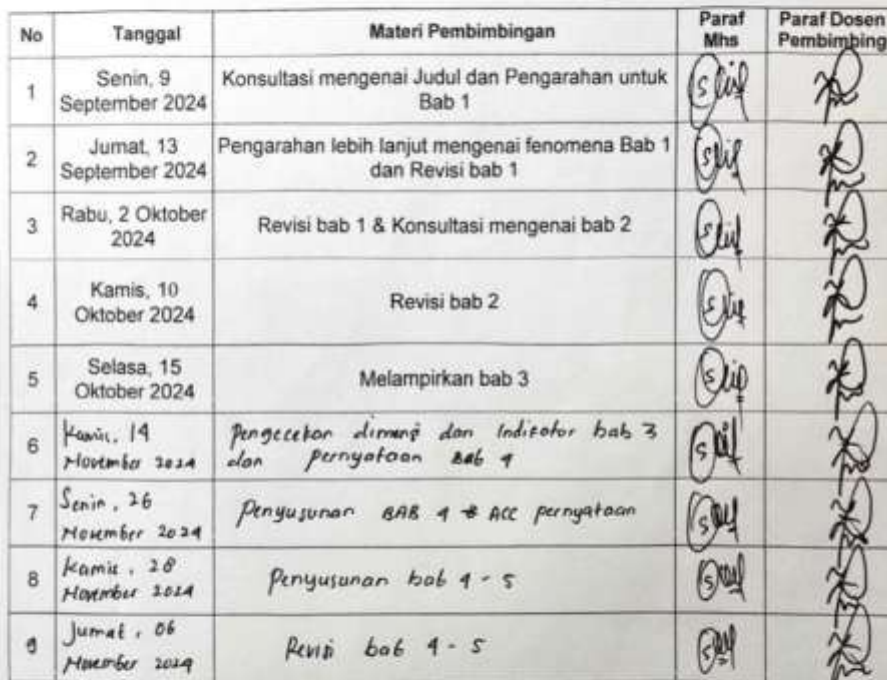 No Tanggal Materi Pembimbingan Paraf Mhs Paraf Dosen Pembimbing
1 Senin, 9 September 2024 Konsultasi mengenai Judul dan Pengarahan untuk Bab 1
2 Jumat, 13 September 2024 Pengarahan lebih lanjut mengenai fenomena Bab 1 dan Revisi bab 1
3 Rabu, 2 Oktober 2024 Revisi bab 1 & Konsultasi mengenai bab 2
4 Kamis, 10 Oktober 2024 Revisi bab 2
5 Selasa, 15 Oktober 2024 Melampirkan bab 3
6 Kamis, 14 November 2024 Pengecekan dimensi dan Indikator bab 3 dan Pernyataan Bab 4
7 Senin, 26 November 2024 Penyusunan BAB 4 & ACC pernyataan
8 Kamis, 28 November 2024 Penyusunan bab 4 - 5
9 Jumat, 06 November 2024 Revisi bab 4 - 5